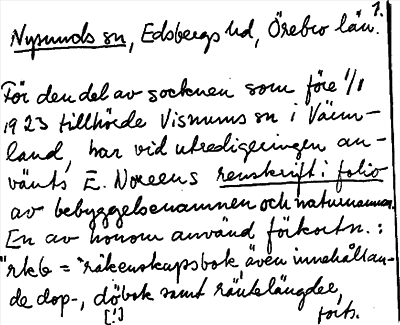 1.
Nysunds sn, Edsbergs hd, Örebro län.
För den del av socknen som före 1/1
1923 tillhörde Visnums sn i Värm-
land, har vid utredigeringen an-
vänts E. Noreens renskrift i folio
av bebyggelsenamnen och naturnamnen.
En av honom använd förkortn.:
"rkb = räkenskapsbok, även innehållan-
de dop-, döbok samt räntelängder,
[!] forts.